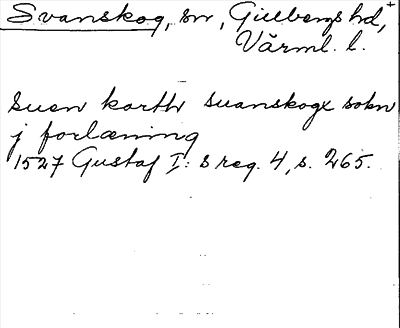 Svanskog, sn, Gillbergs hd,+
Värml. l.
Suen korthr suanskogx sokn
j forlæning
1527 Gustaf I:s reg. 4, s. 265.